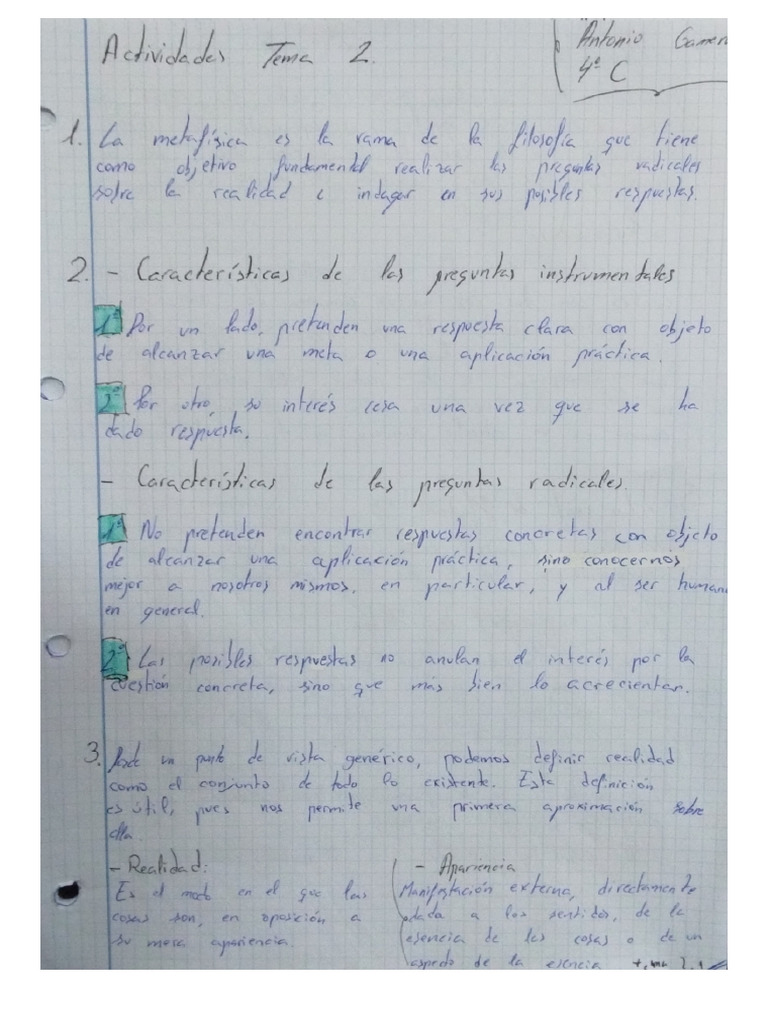 Actividades Tema 2.
Antonio Gamer
4º C
1. La metafísica es la rama de la filosofía que tiene
como objetivo fundamental realizar las preguntas radicales
sobre la realidad e indagar en sus posibles respuestas.
2. - Características de las preguntas instrumentales
1º Por un lado, pretenden una respuesta clara con objeto
de alcanzar una meta o una aplicación práctica.
2º Por otro, su interés cesa una vez que se ha
dado respuesta.
- Características de las preguntas radicales.
1º No pretenden encontrar respuestas concretas con objeto
de alcanzar una aplicación práctica, sino conocernos
mejor a nosotros mismos, en particular, y al ser human
en general.
2º Las posibles respuestas no anulan el interés por la
cuestión concreta, sino que más bien lo acrecientan.
3. Desde un punto de vista genérico, podemos definir realidad
como el conjunto de todo lo existente. Esta definición
es útil, pues nos permite una primera aproximación sobre
ella.
- Realidad:
Es el modo en el que las
cosas son, en oposición a
su mera apariencia.
- Apariencia
Manifestación externa, directamente
dada a los sentidos, de la
esencia de las cosas o de un
aspecto de la esencia